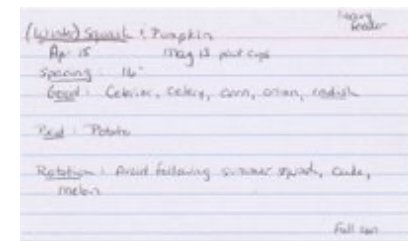 heavy
feeder
(Winter) Squash & Pumpkin
Apr 15 May 13 peat cups
Spacing: 16"
Good: Celeriac, Celery, corn, onion, radish
Bad: Potato
Rotation: Avoid following summer squash, Cuke,
melon
Full sun